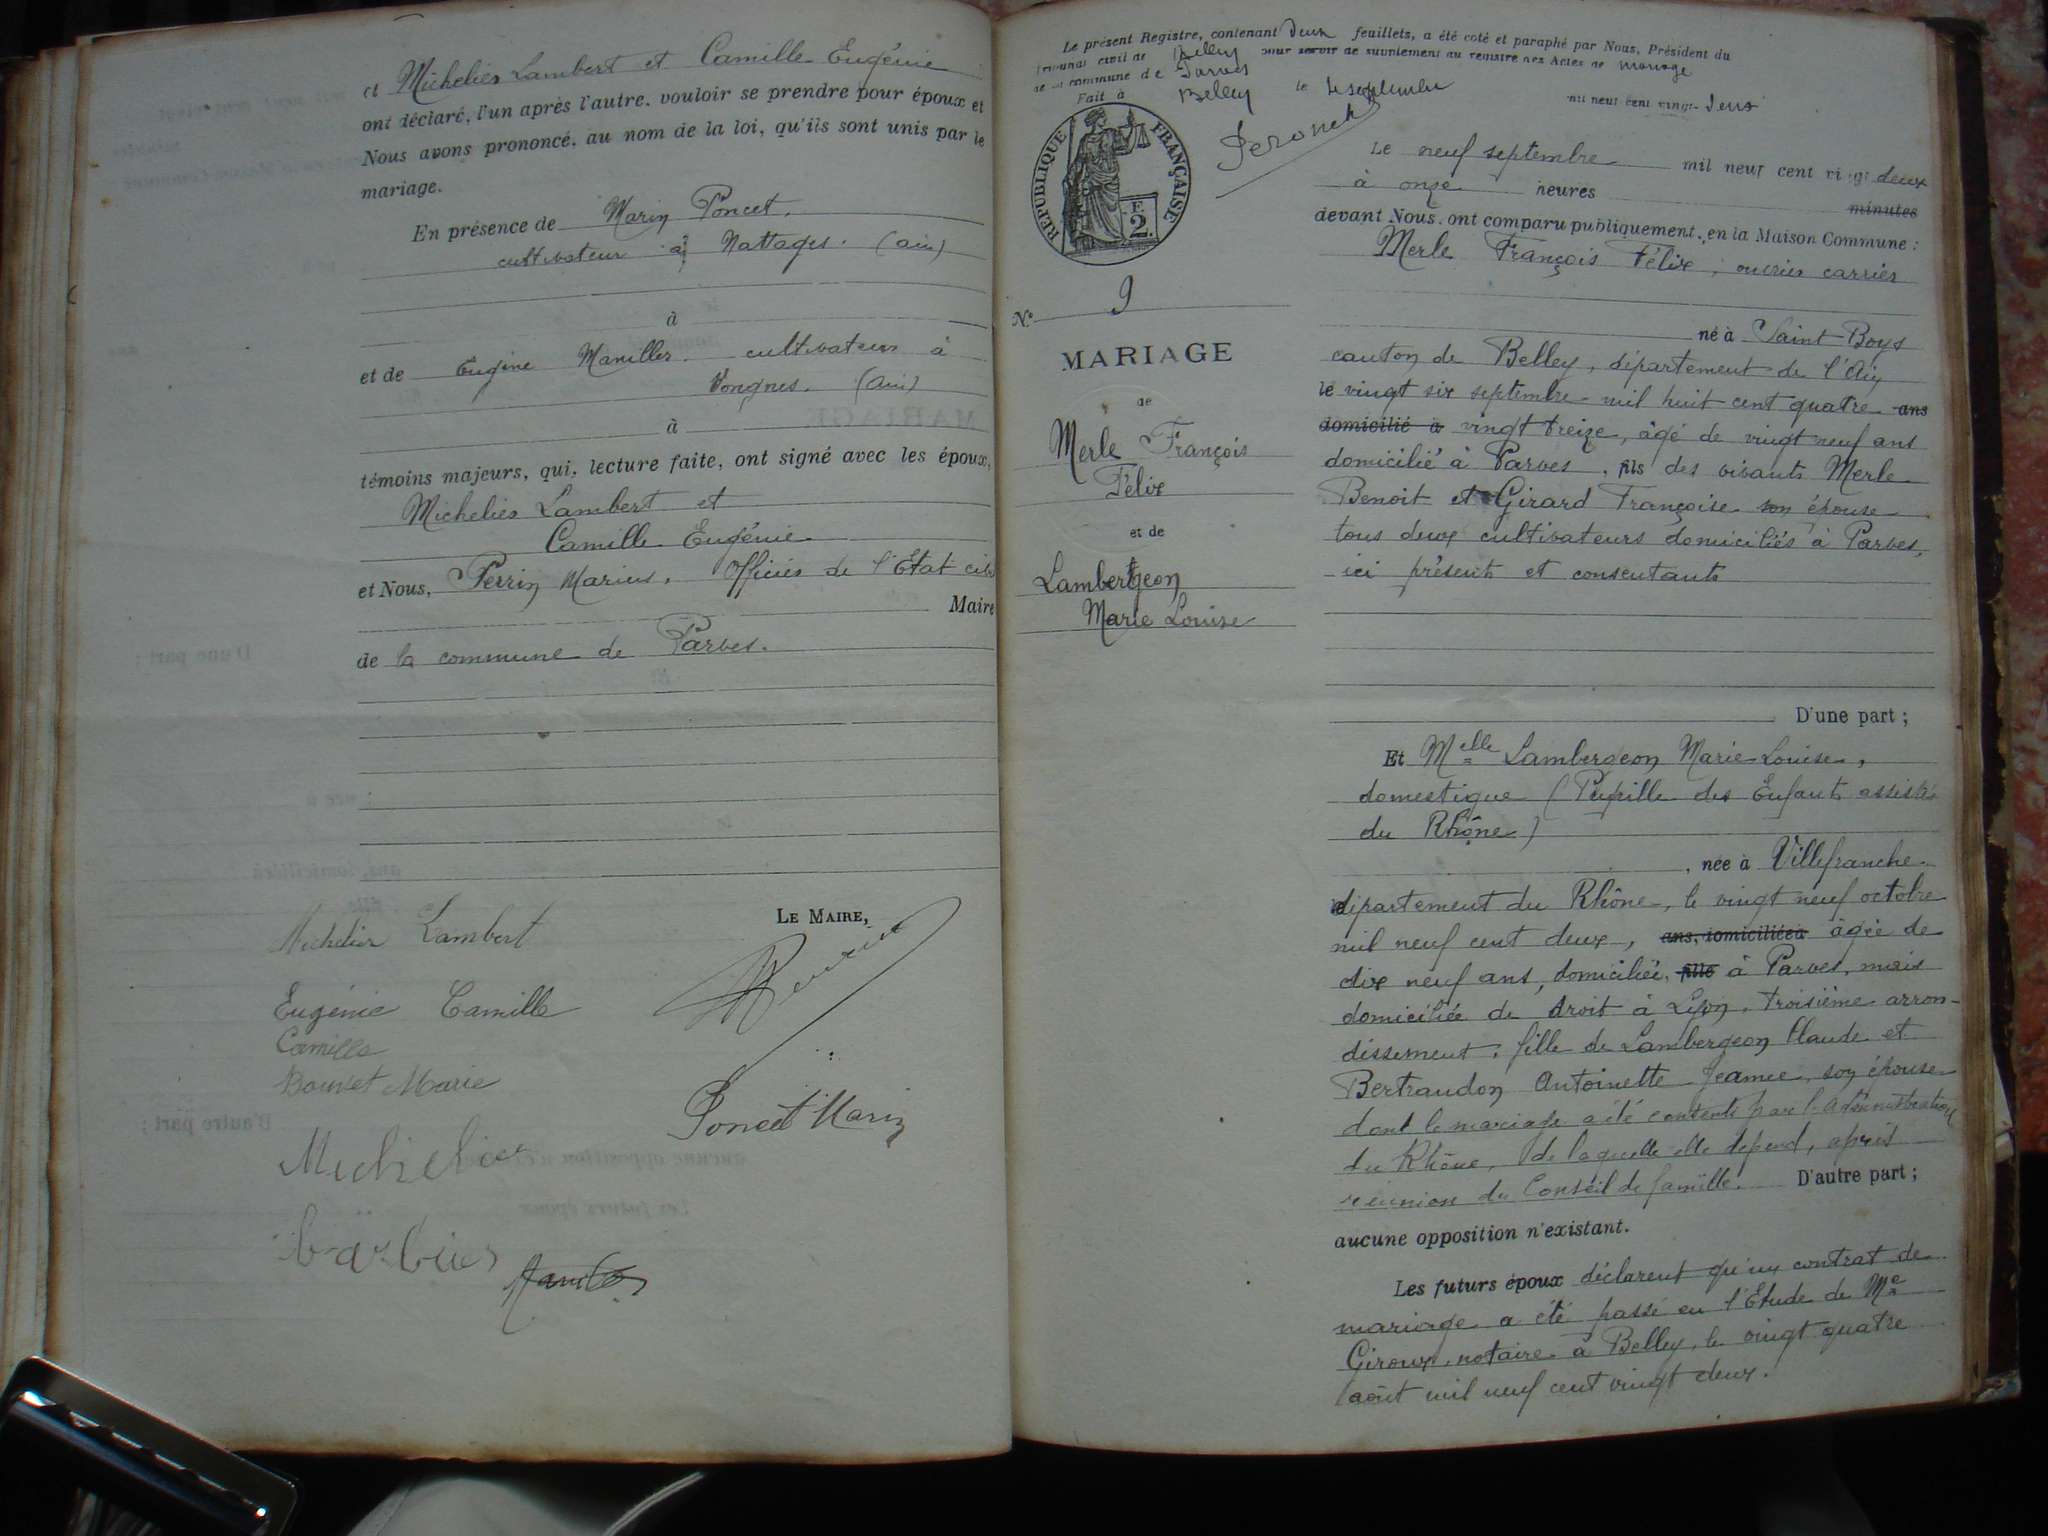 et Michelier Lambert et Camille Eugénie
ont déclaré, l'un après l'autre, vouloir se prendre pour époux et
Nous avons prononcé, au nom de la loi, qu'ils sont unis par le
mariage.
En présence de Marin Poncet,
cultivateur à Nattages. (ain)
à
et de Eugène Maniller cultivateur à
Vongnes. (Ain)
à
témoins majeurs, qui, lecture faite, ont signé avec les époux,
Michelier Lambert et
Camille Eugénie
et Nous, Perrin Marius, Officier de l'Etat civil
Maire
de la commune de Parves.
LE MAIRE,
Michelier Lambert
Eugénie Camille
Camille
Bouvet Marie
Poncet Marin
Michelier
Le présent Registre, contenant deux feuillets, a été coté et paraphé par Nous, Président du
Tribunal civil de Belley pour servir de supplément au registre des Actes de mariage
de la commune de Parves
Fait à Belley le 4 septembre mil neuf cent vingt-deux
Peronch
RÉPUBLIQUE FRANÇAISE
F.
2.
Le neuf septembre mil neuf cent vingt deux
à onze heures minutes
devant Nous, ont comparu publiquement, en la Maison Commune :
Merle François Félix, ouvrier carrier
né à Saint Boys
canton de Belley, département de l'Ain
le vingt six septembre mil huit cent quatre ans
domicilié à vingt treize, âgé de vingt neuf ans
domicilié à Parves, fils des vivants Merle
Benoit et Girard Françoise son épouse
tous deux cultivateurs domiciliés à Parves,
ici présents et consentants
D'une part ;
N° 9
MARIAGE
de
Merle François
Félix
et de
Lambergeon
Marie Louise
Et Melle Lambergeon Marie-Louise,
domestique (Pupille des Enfants assistés
du Rhône)
, née à Villefranche
département du Rhône, le vingt neuf octobre
mil neuf cent deux, ans, domiciliée à âgée de
dix neuf ans, domiciliée, fille à Parves, mais
domiciliée de droit à Lyon, troisième arron-
dissement, fille de Lambergeon Claude et
Bertraudon Antoinette Jeanne, son épouse
dont le mariage a été consenti par l'Administration
du Rhône, de laquelle elle dépend, après
réunion du Conseil de famille. D'autre part ;
aucune opposition n'existant.
Les futurs époux déclarent qu'un contrat de
mariage a été passé en l'Etude de Me
Giroux, notaire à Belley, le vingt quatre
août mil neuf cent vingt deux.